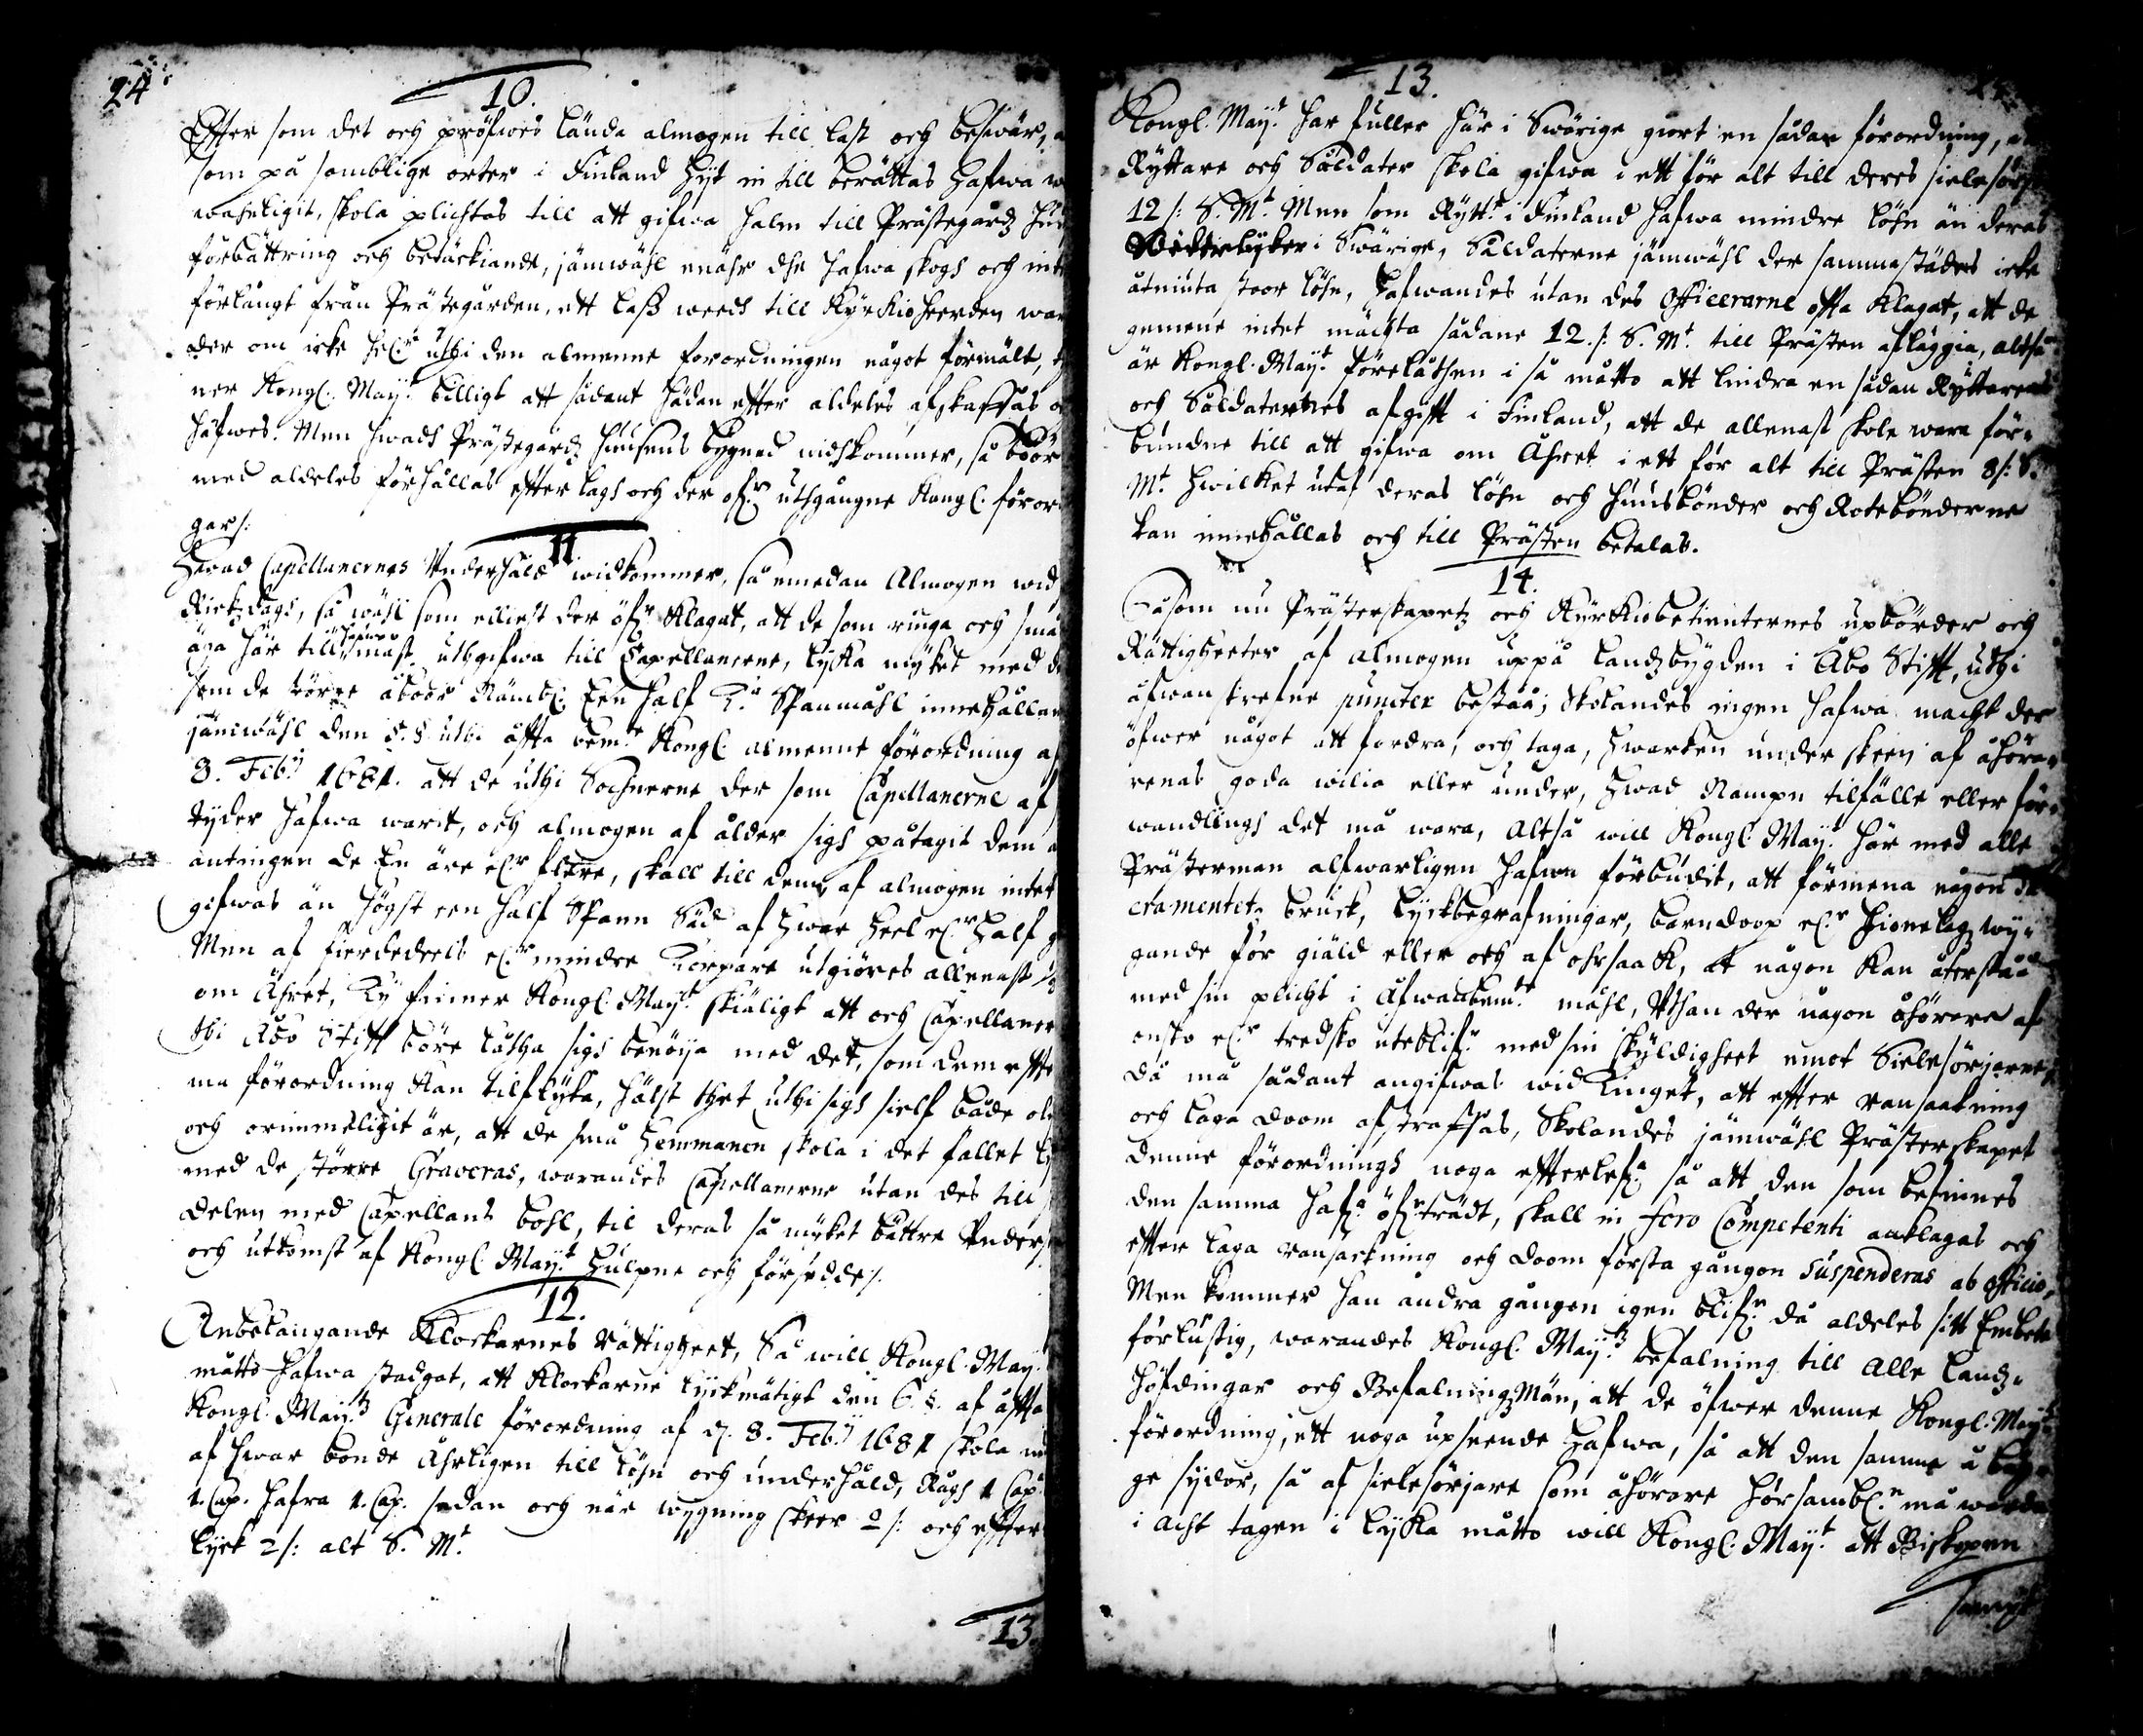 24
10.
Effter som det och pröfwes lända almogen till last och beswär,
som på somblige orter i Finland hijt in till berättas hafwa
wahnligit, skola plichtas till att gifwa halm till Prästegårdz
förbättring och betäckiande, jämwähl enähr dhe hafwa skogh och
förlångt från Prästegården, ett lass weedh till Kyrkioheerden
der om icke hel:r uthi den almenne forordningen något förmält,
ner Kongl. May:t billigt att sådant hädan effter aldeles afskaffas
häfwes. Men hwadh Prästegårdz Huusens bygnad widkommer, så böör
med aldeles förhållas effter lagh och der öf:r uthgångne Kongl.
gar/.
11
Hwad Capellanernes Underhåld widkommer, så emedan Almogen wid
Rickzdagh, så wähl som elliest der öf:r klagat, att de som ringa och små
äga här till mast uthgifwa till Capellanerne, lyka myket med
som de större åboor Nämbl. Een half T:a Spanmåhl
jämwähl den 5. § uthi offta bem:te Kongl. almenne förordning af
8. Feb:ij 1681. att de uthi Sochnerne der som Capellanerne af
tijder hafwa warit, och almogen af ålder sigh påtagit dem
antingen de En äre el:r flere, skall till dem af almogen intet
gifwas än högst een half Spann Säd af hwar heel el:r half
Men af fierdedeels el:r mindre Torpare utgiöres allenast
om Åhret, Ty finner Kongl. May:t skiäligt att och
thi Åbo Stifft böre låtha sigh benöija med det, som dem
ma förordning kan tilflyta, hälst thet uthi sigh sielf både
och orimmeligit är, att de små hemmanen skola i det fallet
med de större Graveras, warandes Capellanerne utan des till
delen med Capellans bohl, til deras så myket bättre
och utkomst af Kongl. May:t hulpne och försedde/.
12.
Anbelangande Klockarnes rättigheet, Så will Kongl. May:t
måtto hafwa stadgat, att Klockarne lijckmätigt den 6. §. af offta
Kongl. May:tz Generale förordning af d. 8. Feb:ij 1681 skola
af hwar bonde Åhrligen till löhn och underhåld, Rågh 1 Cap:
1. Cap. hafra 1. Cap. sedan och när wygning skeer 2 /: och effter
lijck 2 /: alt S. M:t
13
13.
Kongl. May:t har fuller här i Swärige giort en sådan förordning,
Ryttare och Soldater skola gifwa i ett för alt till deres
12 /: S. M:t Men som Rytt:e i Finland hafwa mindre löhn än deras
Wederlijker i Swärige, Soldaterne jämwähl der sammastädes icke
åtniuta stoor löhn, hafwandes utan des Officerarne offta klagat, att de
gemene intet mächta sådane 12. /: S. M:t till Prästen afläggia, altså
är Kongl. May:t föreläthsen i så måtto att lindra en sådan Ryttarenes
och Soldaternes afgifft i Finland, att de allenast skole wara för=
bundne till att gifwa om Åhret i ett för alt till Prästen 8 /: S.
M:t hwilket utaf deras löhn och huusbönder och Rotebönderne
kan innehållas och till Prästen betalas.
14.
Såsom nu Prästerskapetz och Kyrkiobetienternes upbörder och
Rättigheeter af almogen uppå landzbygden i Åbo Stifft, uthi
åfwanskrefne puncter bestaa; Skolandes ingen hafwa macht der
öfwer något att fordra, och taga, hwarken under skeen af åhöra=
renas goda wilia eller under, hwad Nampn tilfälle eller för=
wandlingh det må wara, Altså will Kongl. May:t här med alle
Prästerman alfwarligen hafwa förbudit, att förmena någon Sa
cramentetz bruck, Lijckbegrafningar, barndoop el:r hionelag wy=
gande för giäld eller och af ohrsaak, at någon kan återstaa
med sin plicht i åfwanbem:te måhl, Uthan der någon åhörare af
onsko el:r tredsko uteblif:r med sin skyldigheet emot Sielesörjaren,
då må sådant angifwas wid Tinget, att effter ransaakning
och laga doom afstraffas, Skolandes jämwähl Prästerskapet
denne förordningh noga effterlef:a så att den som befinnes
den samma haf:a öf:rträdt, skall in foro Competenti anklagas och
effter laga ransackning och doom första gången suspenderas ab officio,
Men kommer han andra gången igen blif:r då aldeles sitt Embete
förlustig, warandes Kongl. May:tz befalning till Alle landz=
höfdingar och Befalningzmän, att de öfwer denne Kongl. May:tz
förordning, ett noga upseende hafwa, så att den samme å
ge sydor, så af sielesörjare som åhörare hörsambl:n må warda
i acht tagen i lijka måtto will Kongl. May:t att Biskopen